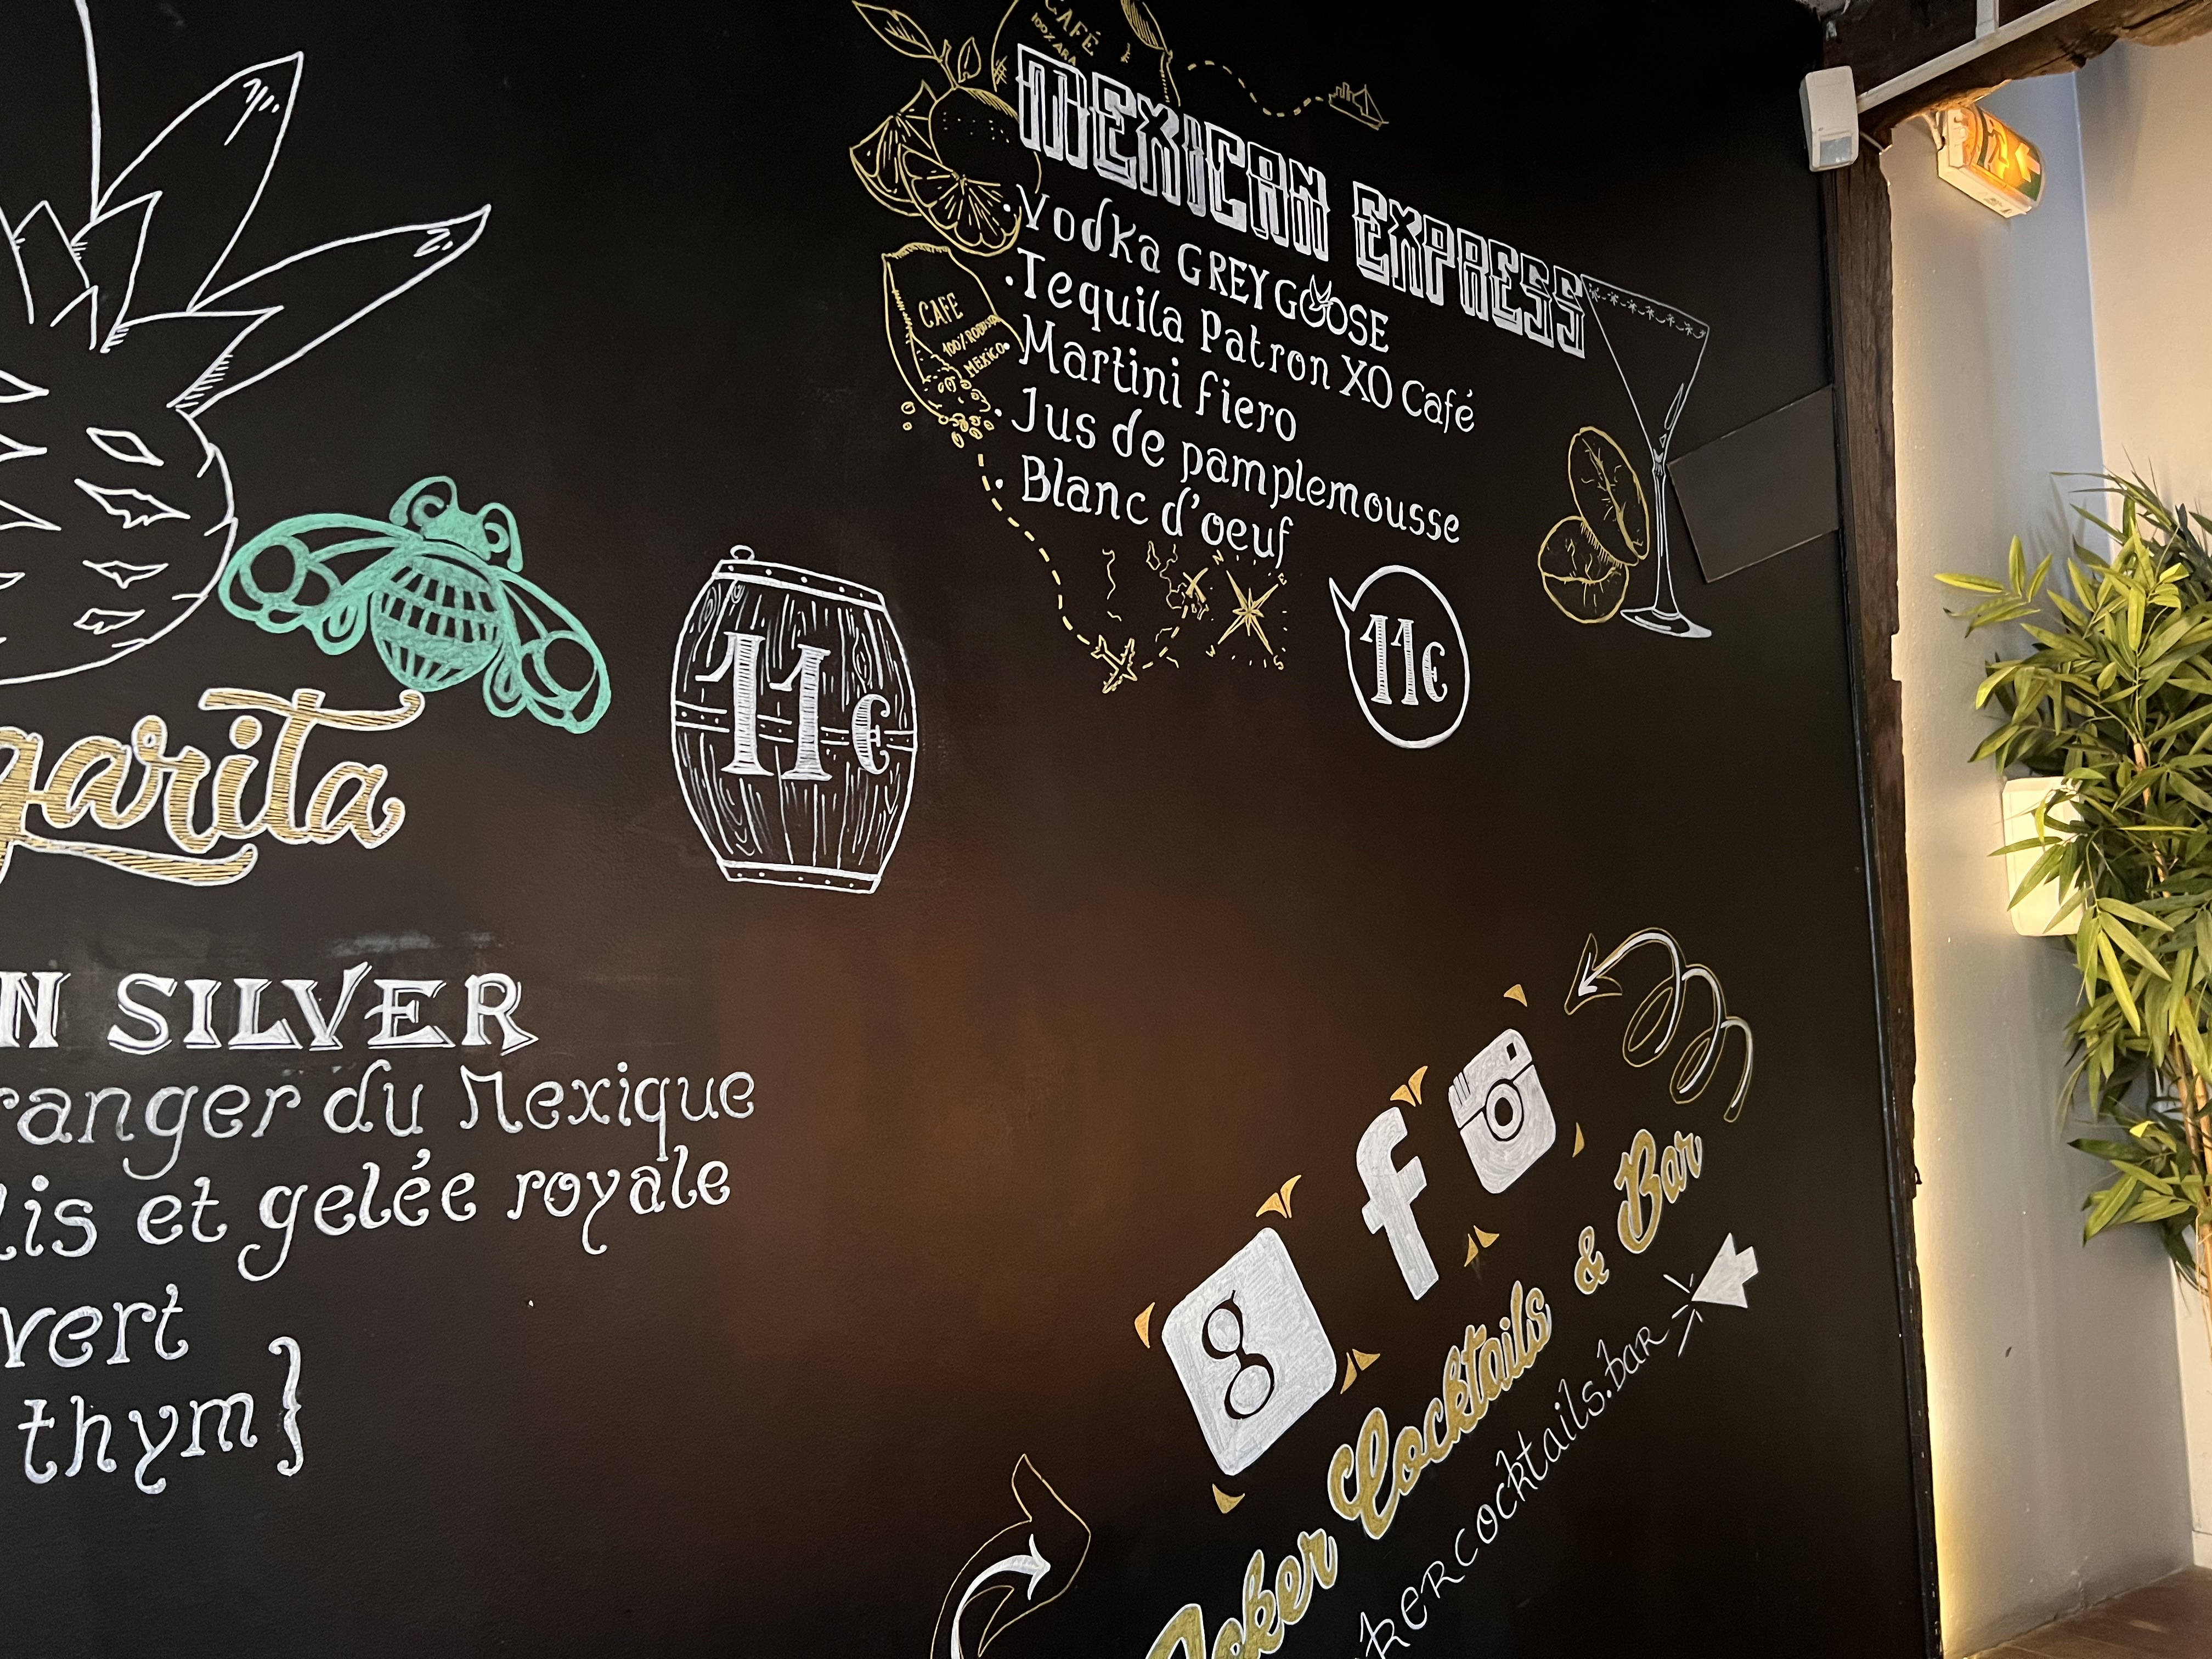 CAFÉ
MEXICAN EXPRESS
· Vodka GREY GOOSE
· Tequila Patron XO Café
· Martini fiero
· Jus de pamplemousse
· Blanc d'oeuf
CAFE
100% ROBUSTA
MEXICO
N
E
S
W
11€
11€
garita
N SILVER
ranger du Mexique
lis et gelée royale
vert
thym}
g f
Joker Cocktails & Bar
kercocktails.bar